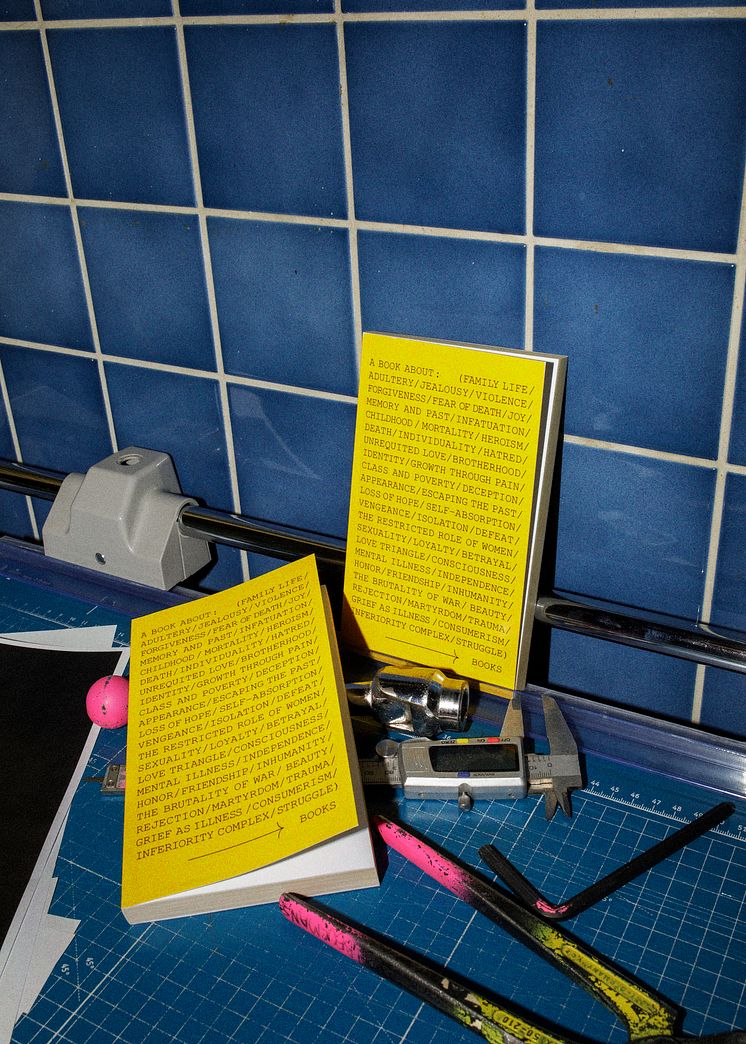 A BOOK ABOUT: (FAMILY LIFE/
ADULTERY/JEALOUSY/VIOLENCE/
FORGIVENESS/FEAR OF DEATH/JOY/
MEMORY AND PAST/INFATUATION/
CHILDHOOD/MORTALITY/HEROISM/
DEATH/INDIVIDUALITY/HATRED/
UNREQUITED LOVE/BROTHERHOOD/
IDENTITY/GROWTH THROUGH PAIN/
CLASS AND POVERTY/DECEPTION/
APPEARANCE/ESCAPING THE PAST/
LOSS OF HOPE/SELF-ABSORPTION/
VENGEANCE/ISOLATION/DEFEAT/
THE RESTRICTED ROLE OF WOMEN/
SEXUALITY/LOYALTY/BETRAYAL/
LOVE TRIANGLE/CONSCIOUSNESS/
MENTAL ILLNESS/INDEPENDENCE/
HONOR/FRIENDSHIP/INHUMANITY/
THE BRUTALITY OF WAR/BEAUTY/
REJECTION/MARTYRDOM/TRAUMA/
GRIEF AS ILLNESS/CONSUMERISM/
INFERIORITY COMPLEX/STRUGGLE)
BOOKS
A BOOK ABOUT: (FAMILY LIFE/
ADULTERY/JEALOUSY/VIOLENCE/
FORGIVENESS/FEAR OF DEATH/JOY/
MEMORY AND PAST/INFATUATION/
CHILDHOOD/MORTALITY/HEROISM/
DEATH/INDIVIDUALITY/HATRED/
UNREQUITED LOVE/BROTHERHOOD/
IDENTITY/GROWTH THROUGH PAIN/
CLASS AND POVERTY/DECEPTION/
APPEARANCE/ESCAPING THE PAST/
LOSS OF HOPE/SELF-ABSORPTION/
VENGEANCE/ISOLATION/DEFEAT/
THE RESTRICTED ROLE OF WOMEN/
SEXUALITY/LOYALTY/BETRAYAL/
LOVE TRIANGLE/CONSCIOUSNESS/
MENTAL ILLNESS/INDEPENDENCE/
HONOR/FRIENDSHIP/INHUMANITY/
THE BRUTALITY OF WAR/BEAUTY/
REJECTION/MARTYRDOM/TRAUMA/
GRIEF AS ILLNESS/CONSUMERISM/
INFERIORITY COMPLEX/STRUGGLE)
BOOKS
44 45 46 47 48 49 50 51
45°
45°